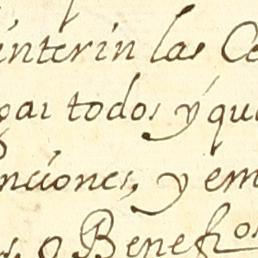 interin las Ce
gar todos y que
nciones, y em
s, o Benefos